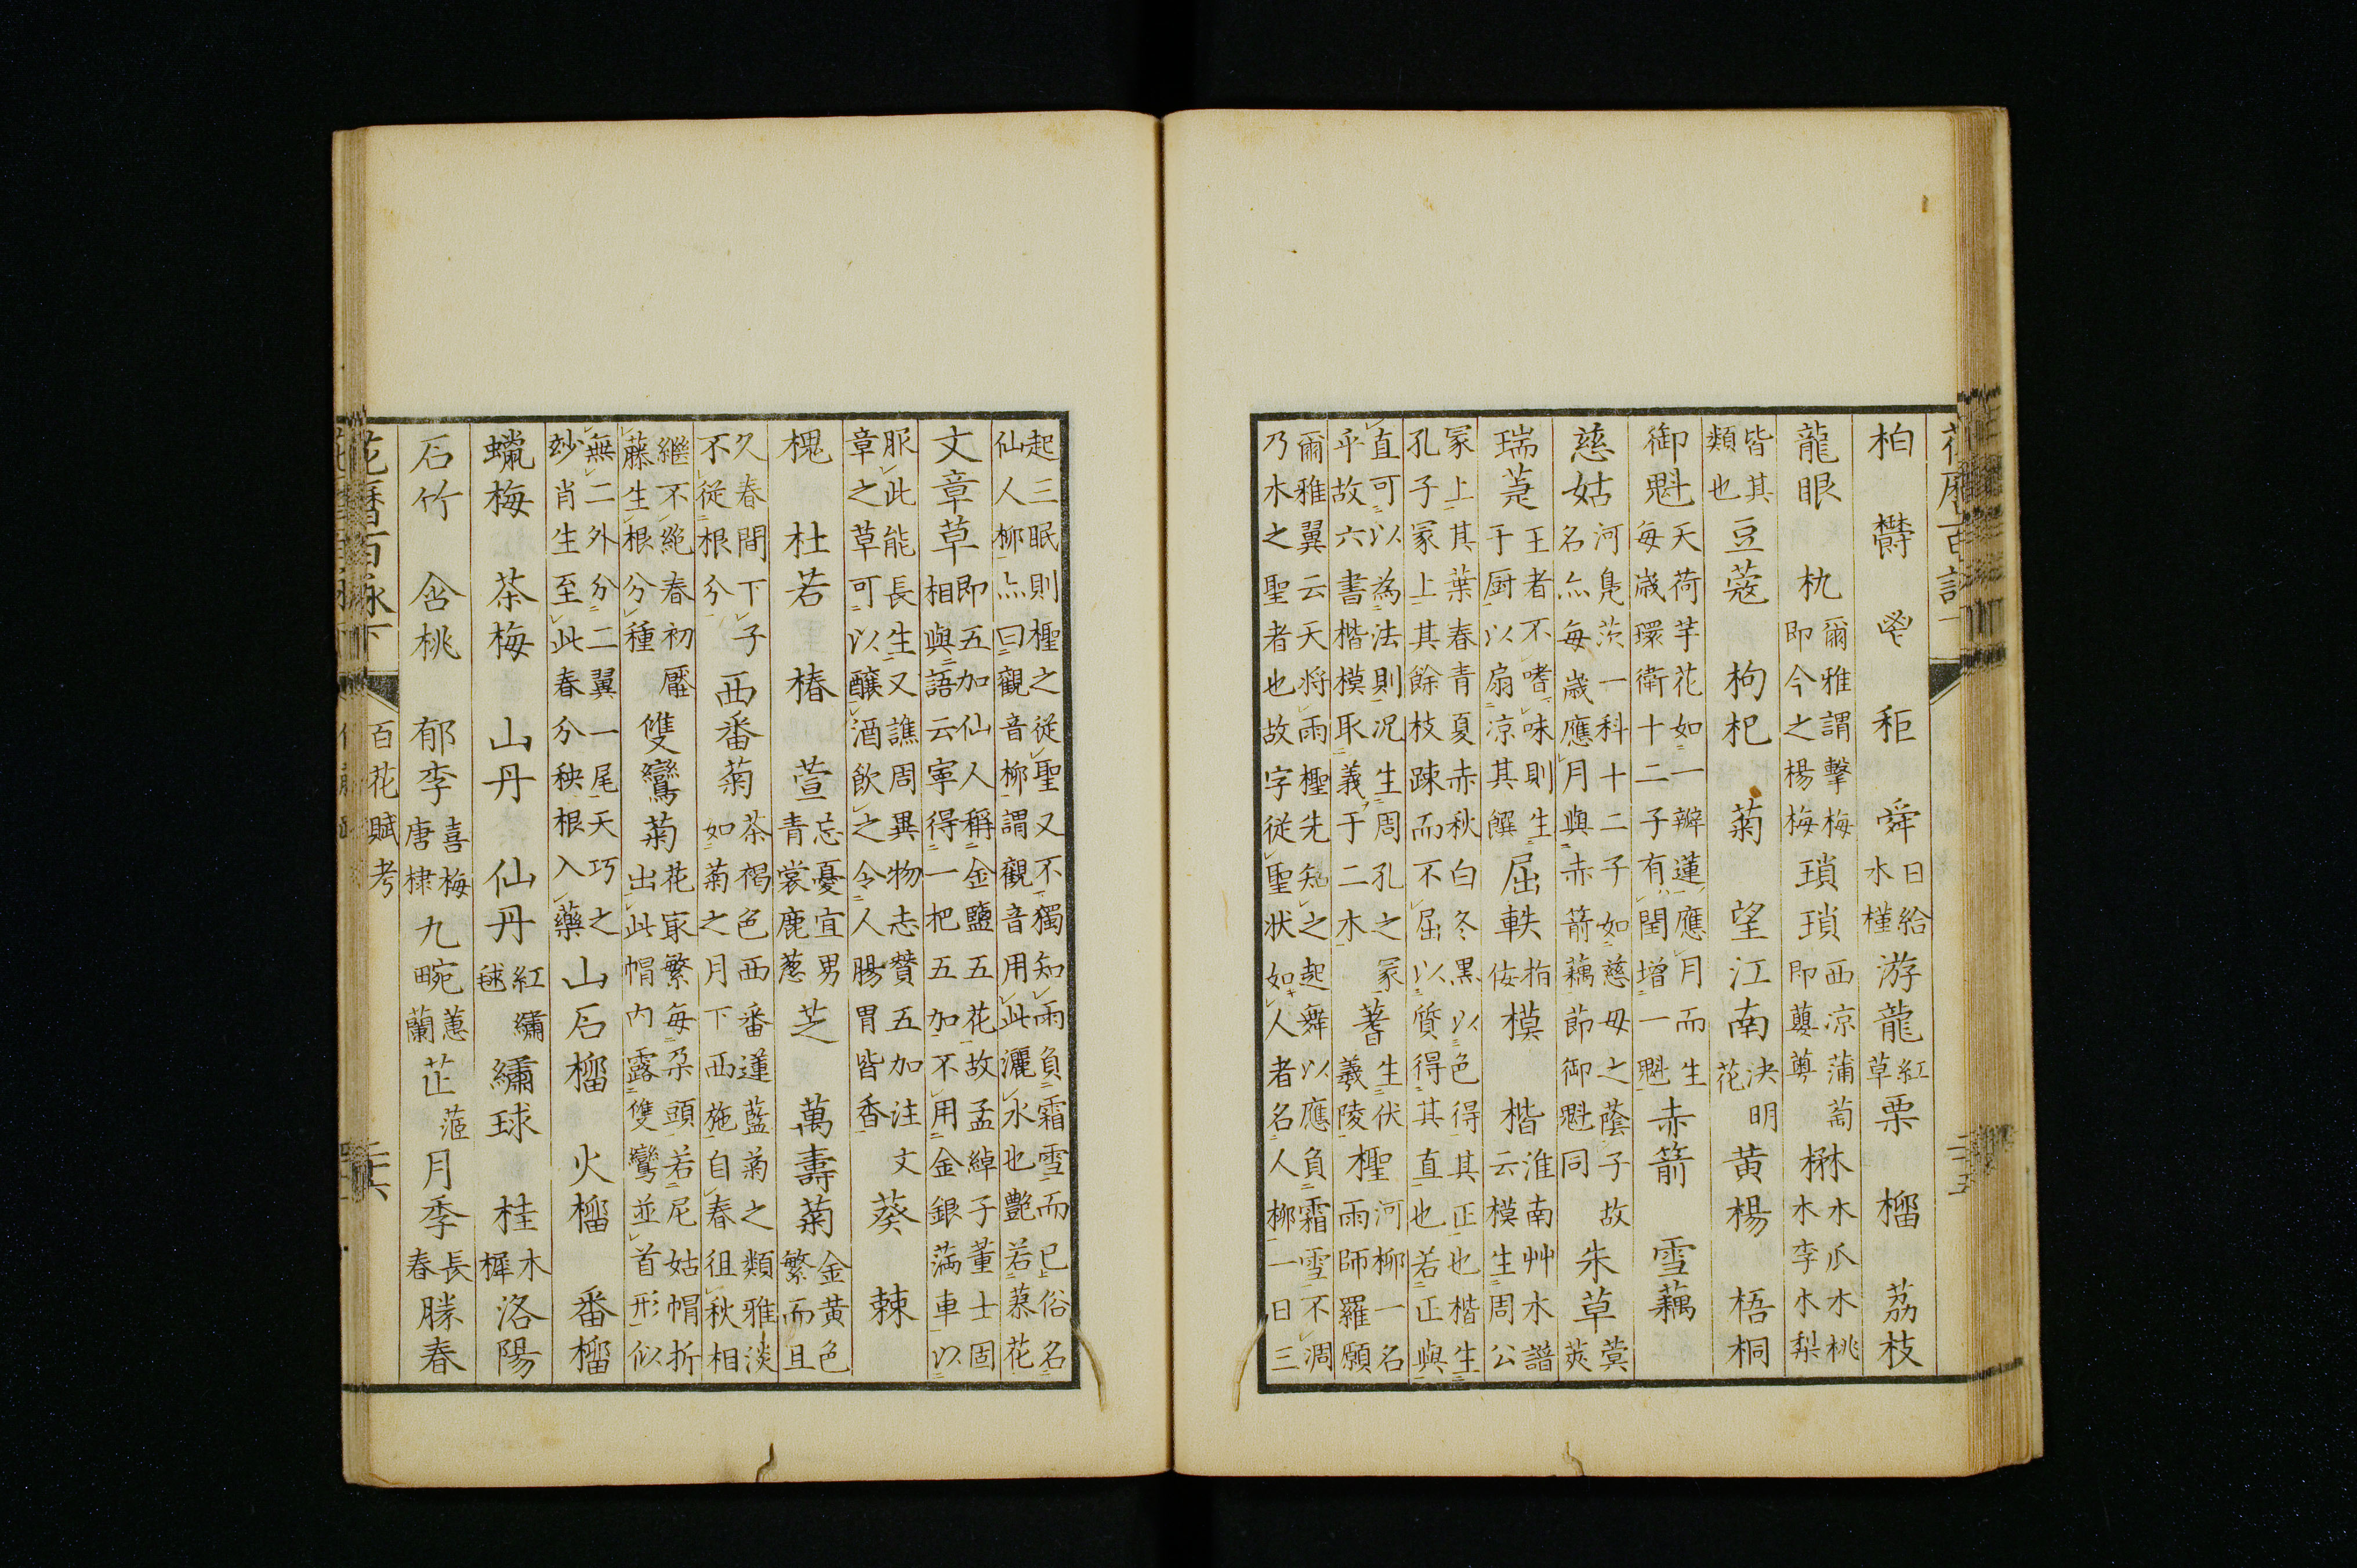 柏 欝 鬯 秬 舜 日給 木槿 游龍 紅草 栗 榴 荔枝
龍眼 朹 爾雅謂擊梅 即今之楊梅 瑣瑣 西凉蒲萄 即蘡薁 楙 木瓜木桃 木李木梨
皆其類也 豆蔻 枸杞 菊 望江南 決明花 黄楊 梧桐
御魁 天荷芋花如一瓣蓮應月而生 每歲環衛十二子有閏增一魁 赤箭 雪藕
慈姑 河鳧茨一科十二子如慈母之䕃子故 名亦每歲應月與赤箭藕節御魁同 朱草 蓂莢
瑞萐 王者不嗜味則生 于厨以扇凉其饌 屈軼 指佞 模 楷 淮南艸木譜 云模生周公
冢上其葉春青夏赤秋白冬黑以色得其正也楷生
孔子冢上其餘枝踈而不屈以質得其直也若正與
直可以為法則况生周孔之冢
乎故六書楷模取義于二木 蓍 生伏羲陵 檉 河柳一名雨師羅願
爾雅翼云天将雨檉先知之起舞以應負霜雪不凋
乃木之聖者也故字從聖狀如人者名人柳一日三
起三眠則檉之從聖又不獨知雨負霜雪而已俗名
仙人柳亦曰觀音柳謂觀音用此灑水也艷若蓼花
文章草 即五加仙人稱金鹽五花故孟綽子董士固
相與語云寧得一把五加不用金銀滿車以
服此能長生又譙周異物志贊五加注文
章之草可以釀酒飲之令人腸胃皆香 葵 棘
槐 杜若 椿 萱 忘憂宜男 青裳鹿葱 芝 萬壽菊 金黄色繁而且
久春間下子
不從根分 西番菊 茶褐色西番蓮藍菊之類雅淡
如菊之月下西施自春徂秋相
繼不絶春初
藤生根分種 雙鸞菊 花最繁每朶頭若尼姑帽折
出此帽内露雙鸞並首形似
無二外分二翼一尾天巧之
玅肖生至此春分秧根入藥 山石榴 火榴 番榴
蠟梅 茶梅 山丹 仙丹 紅繡毬 繡球 桂 木樨 洛陽
石竹 含桃 郁李 喜梅唐棣 九畹 蕙蘭 芷 茝 月季 長春 勝春
花曆百詠下 百花賦考